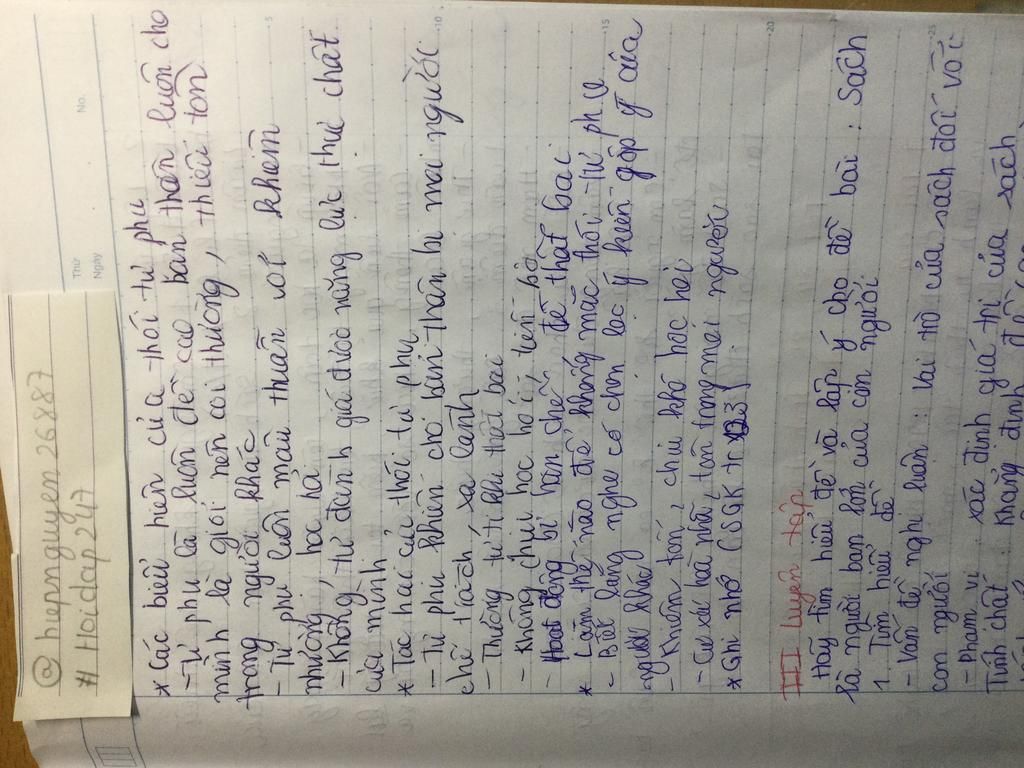 @ hiepnguyen26887
# Hoidap247
Thứ
Ngày
No.
* Các biểu hiện của thói tự phụ
- Tự phụ là luôn đề cao bản thân luôn cho
mình là giỏi nên coi thường, thiếu tôn
trọng người khác
- Tự phụ luôn mâu thuẫn với khiêm
nhường, học hỏi
- Không tự đánh giá được năng lực thực chất
của mình
* Tác hại của thói tự phụ
- Tự phụ khiến cho bản thân bị mọi người
chê trách, xa lánh
- Thường tự ti khi thất bại
- Không chịu học hỏi, tiến bộ
- Hoạt động bị hạn chế, dễ thất bại
* Làm thế nào để không mắc thói tự phụ
- Biết lắng nghe có chọn lọc ý kiến góp ý của
người khác
- Khiêm tốn, chịu khó học hỏi
- Cư xử hòa nhã, tôn trọng mọi người
* Ghi nhớ (SGK tr 23)
III Luyện tập
Hãy tìm hiểu đề và lập ý cho đề bài: Sách
là người bạn lớn của con người
1. Tìm hiểu đề
- Vấn đề nghị luận: Vai trò của sách đối với
con người
- Phạm vi: xác định giá trị của sách
Tính chất: Khẳng định
5
10
15
20
25